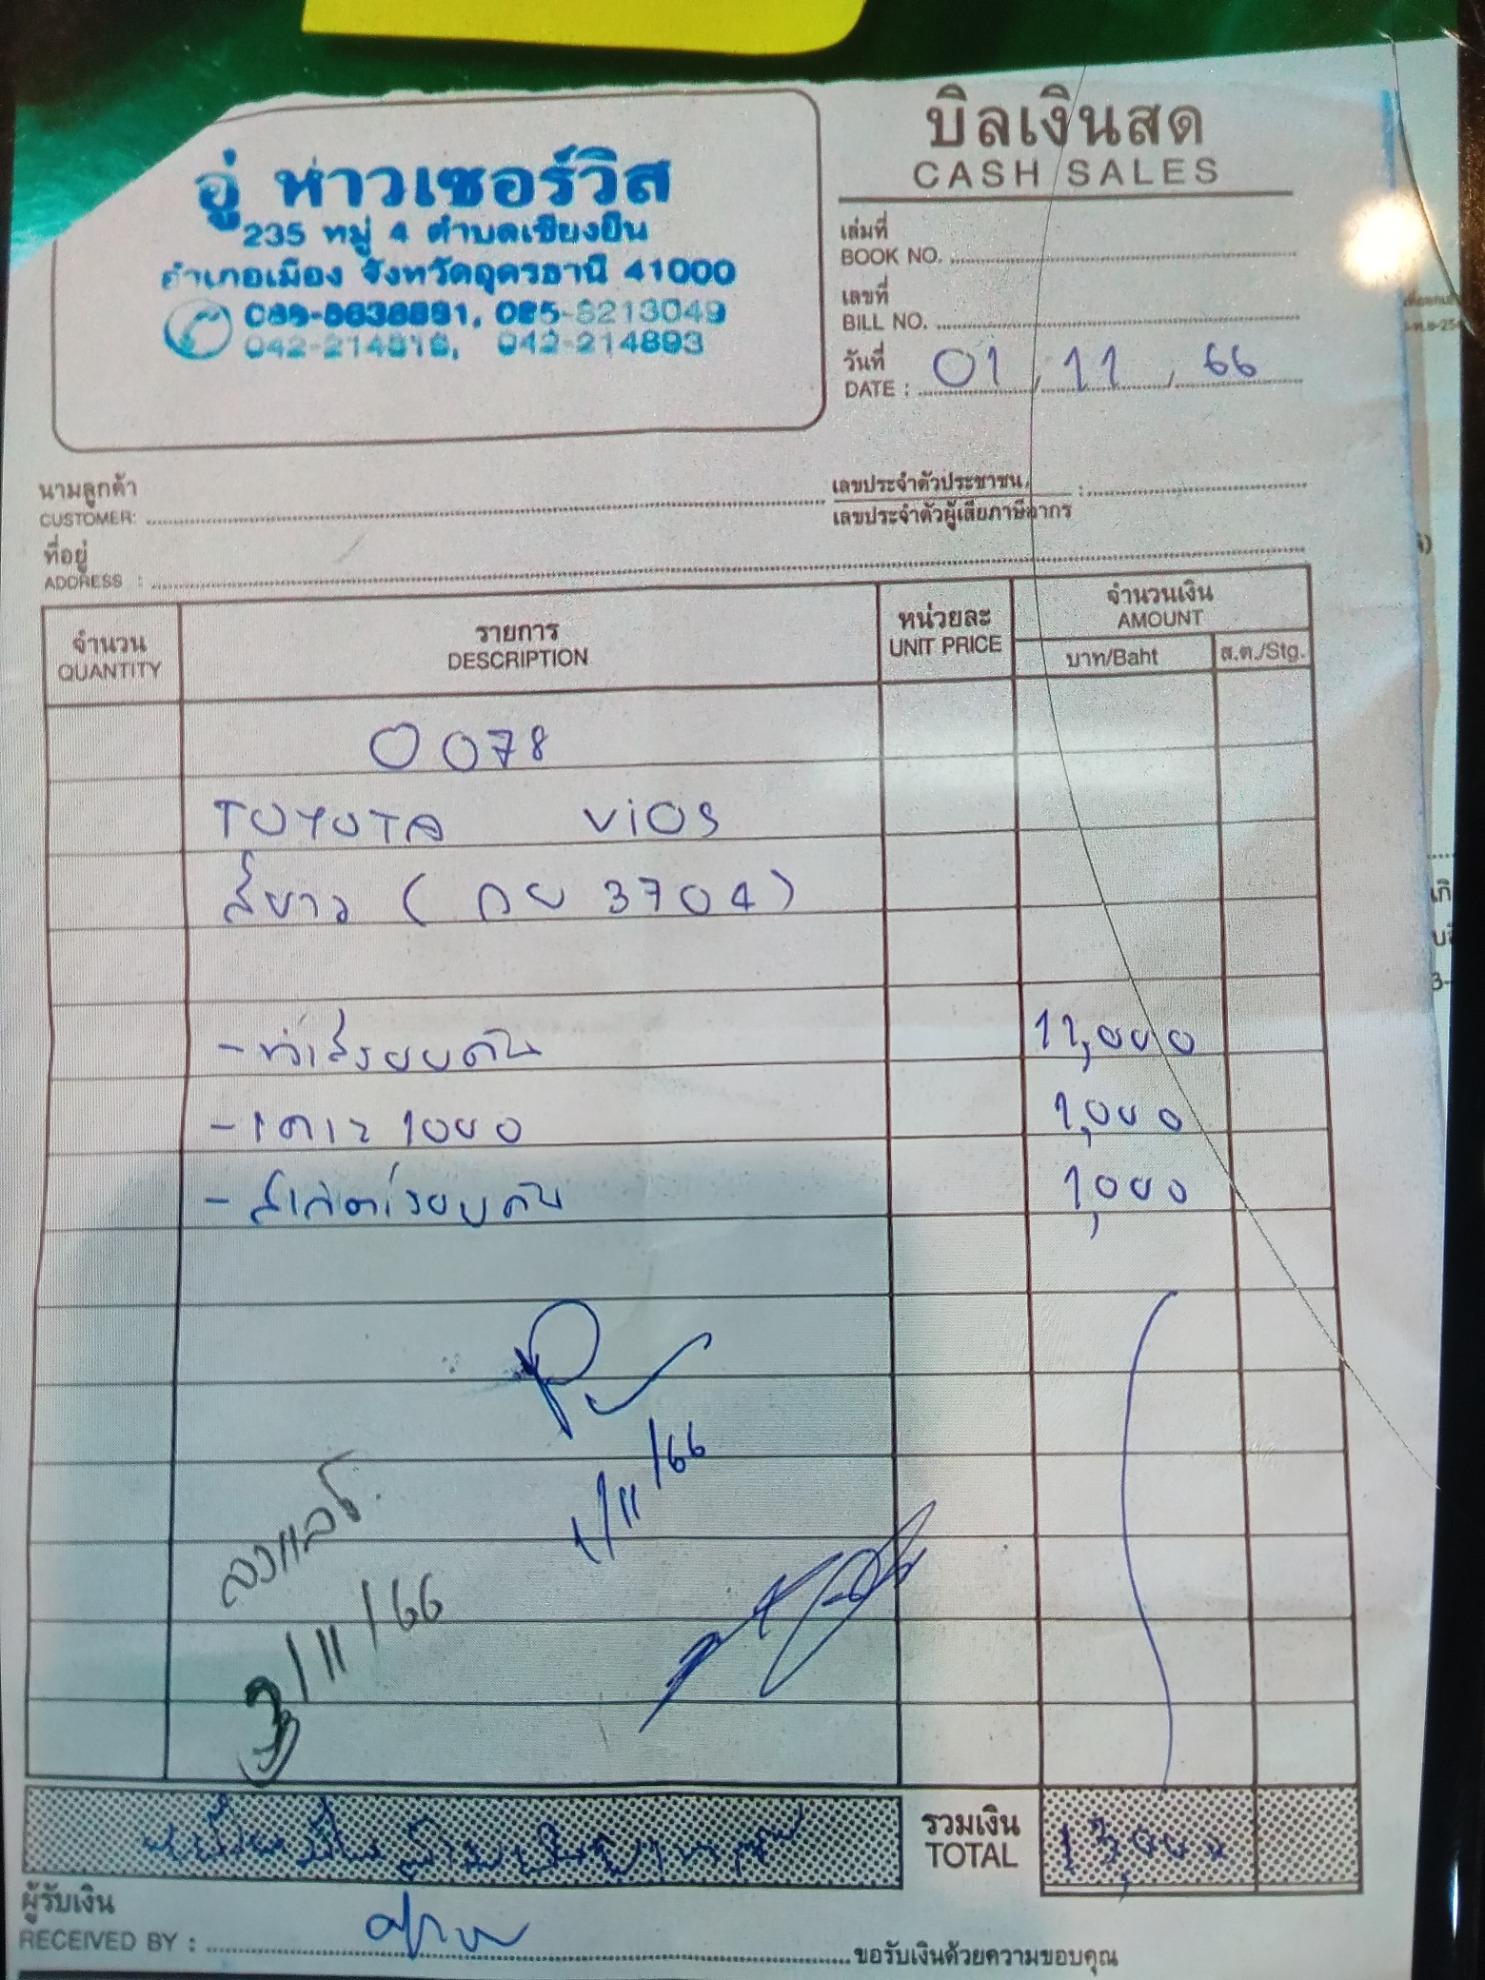 บิลเงินสด
CASH SALES
อู่ ห้าวเซอร์วิส
235 หมู่ 4 ตำบลเชียงยืน
อำเภอเมือง จังหวัดอุดรธานี 41000
042-214893
เล่มที่
BOOK NO.
เลขที่
BILL NO.
วันที่
DATE : 01 / 11 / 66
นามลูกค้า
CUSTOMER:
เลขประจำตัวประชาชน
เลขประจำตัวผู้เสียภาษีอากร :
ที่อยู่
ADDRESS :
จำนวน
QUANTITY
รายการ
DESCRIPTION
หน่วยละ
UNIT PRICE
จำนวนเงิน
AMOUNT
บาท/Baht
ส.ต./Stg.
0078
TOYOTA ViOS
สีขาว ( กย 3704 )
11,000
- เคาะ 1000 1,000
1,000
1/11/66
ลงแล้ว
3/11/66
หนึ่งหมื่นสามพันบาทถ้วน
รวมเงิน
TOTAL 13,000
ผู้รับเงิน
RECEIVED BY :
ขอรับเงินด้วยความขอบคุณ